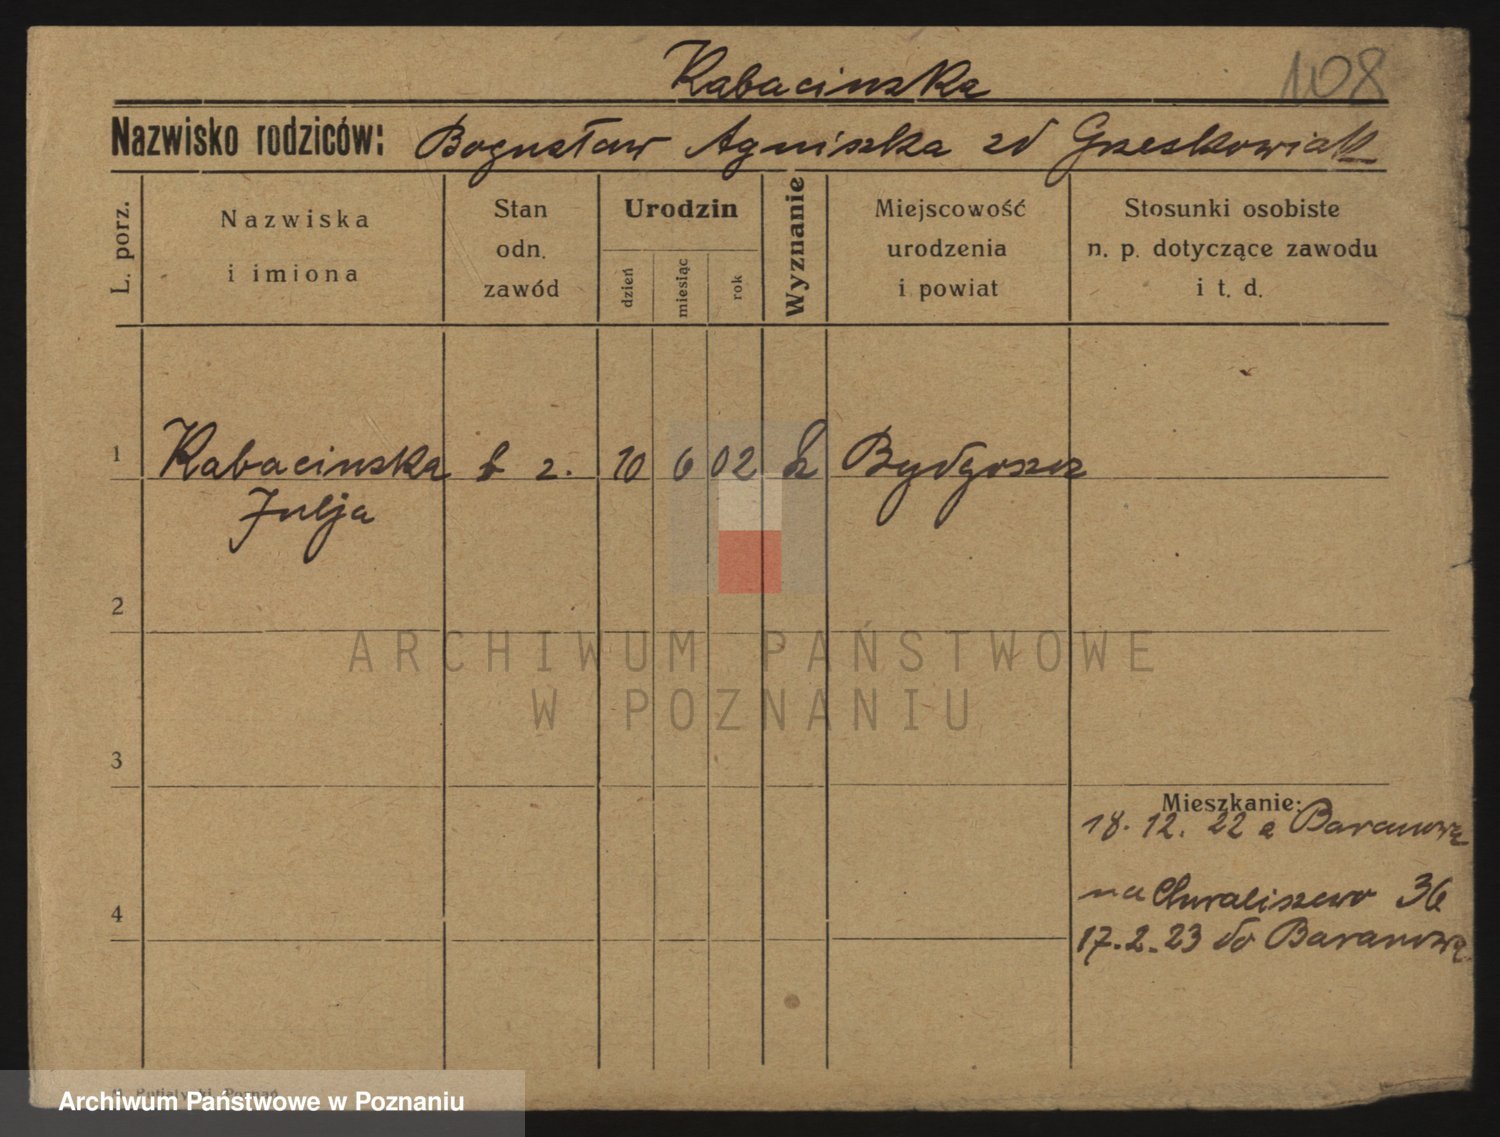 Kabacinska 108
Nazwisko rodziców: Bogusław Agniszka zd Grzeskowiak
L. porz.
Nazwiska
i imiona
Stan
odn.
zawód
Urodzin
dzień
miesiąc
rok
Wyznanie
Miejscowość
urodzenia
i powiat
Stosunki osobiste
n. p. dotyczące zawodu
i t. d.
1 Kabacinska b z. 10 6 02 k Bydgoszcz
Julja
2
3
Mieszkanie:
18. 12. 22 z Baranowa
4 na Chwaliszewo 36
17. 2. 23 do Baranowa
ARCHIWUM PAŃSTWOWE
W POZNANIU
Poznań
Archiwum Państwowe w Poznaniu